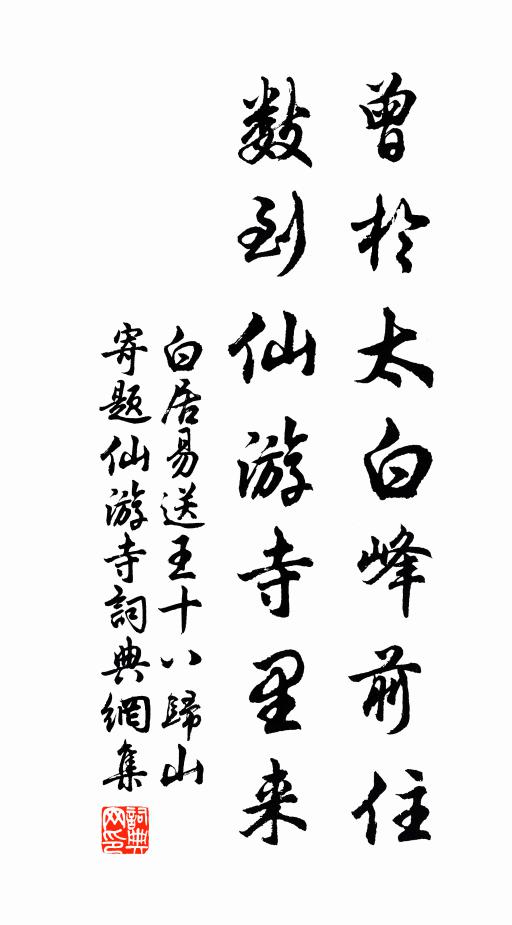 曾於太白峰前住
数到仙游寺里来
白居易送王十八歸山
寄題仙游寺詞典網集
詞典網印